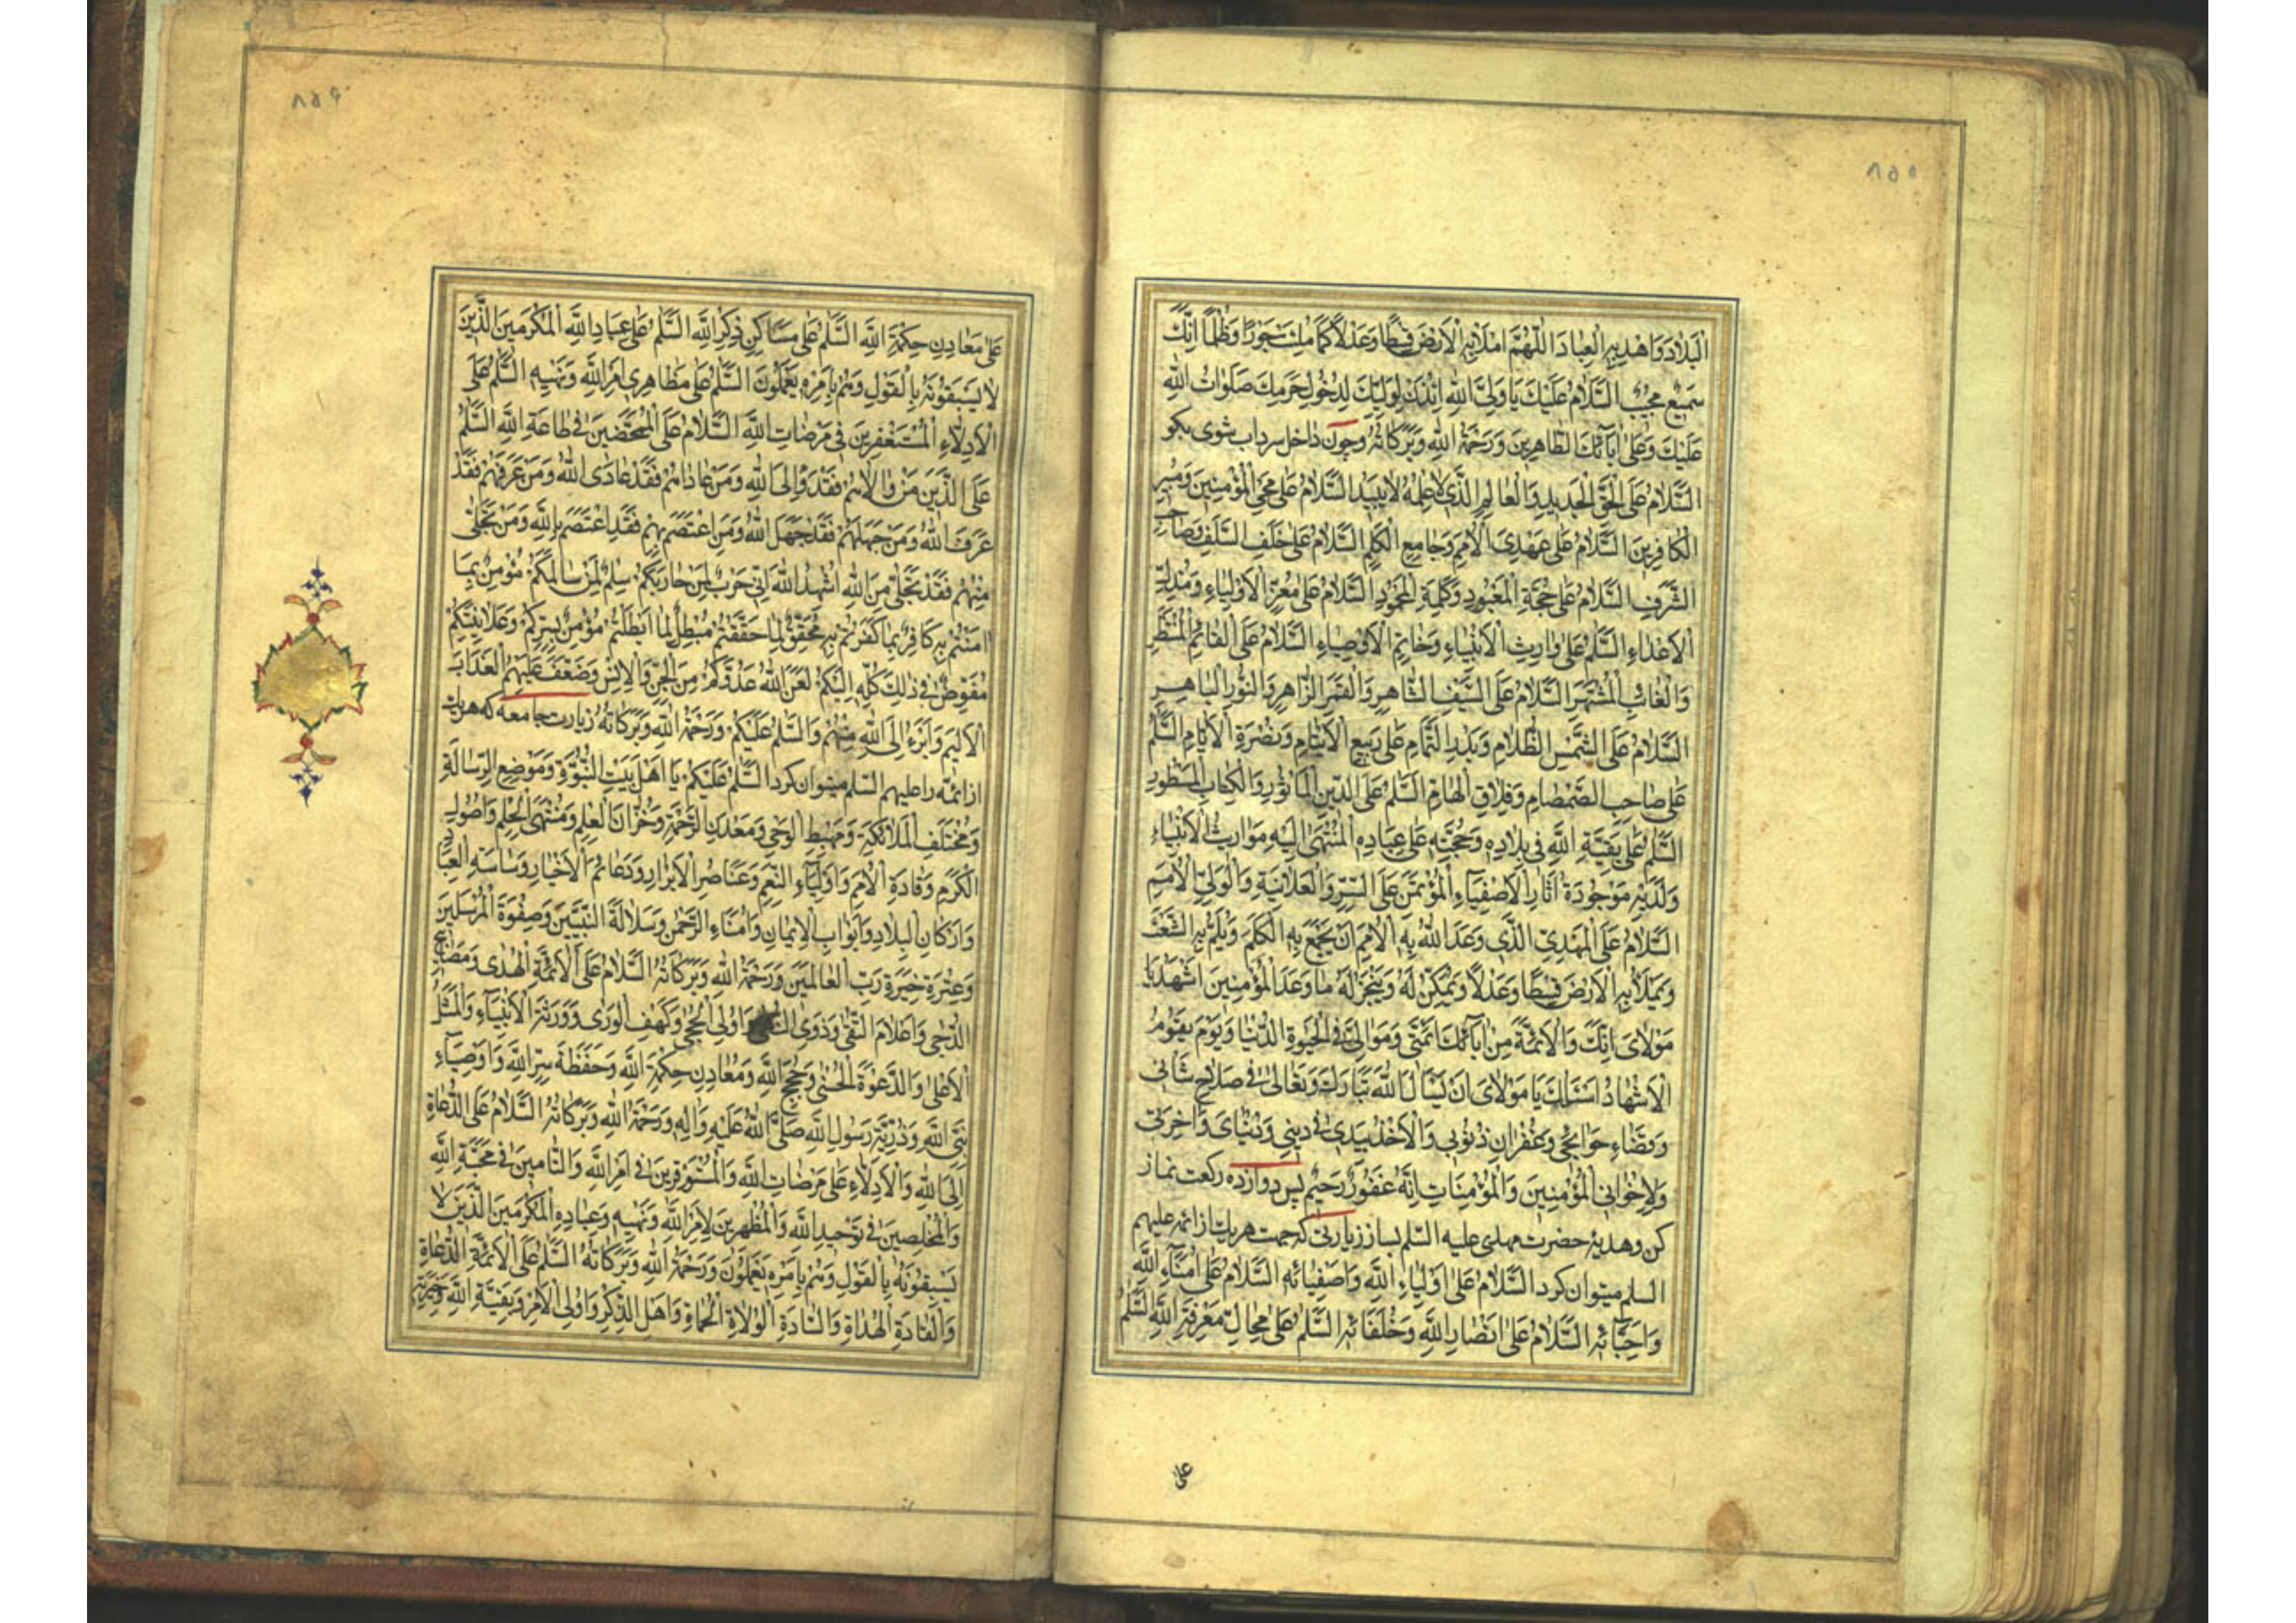 ٨٥٥
الْبِلَادَ وَاهْدِ بِهِ الْعِبَادَ اللّٰهُمَّ امْلَأْ بِهِ الْاَرْضَ قِسْطًا وَعَدْلًا كَمَا مُلِئَتْ جَوْرًا وَظُلْمًا اِنَّكَ
سَمِيعٌ مُجِيبٌ السَّلَامُ عَلَيْكَ يَا وَلِيَّ اللّٰهِ اِئْذَنْ لِوَلِيِّكَ لِدُخُولِ حَرَمِكَ صَلَوَاتُ اللّٰهِ
عَلَيْكَ وَعَلٰى اٰبَائِكَ الطَّاهِرِينَ وَرَحْمَةُ اللّٰهِ وَبَرَكَاتُهُ وچون داخل سرداب شوی بکو
السَّلَامُ عَلَى الْحَقِّ الْجَدِيدِ وَالْعَالِمِ الَّذِي عِلْمُهُ لَا يَبِيدُ السَّلَامُ عَلٰى مُحْيِ الْمُؤْمِنِينَ وَمُبِيرِ
الْكَافِرِينَ السَّلَامُ عَلٰى مَهْدِيِّ الْاُمَمِ وَجَامِعِ الْكَلِمِ السَّلَامُ عَلٰى خَلَفِ السَّلَفِ وَصَاحِبِ
الشَّرَفِ السَّلَامُ عَلٰى حُجَّةِ الْمَعْبُودِ وَكَلِمَةِ الْمَحْمُودِ السَّلَامُ عَلٰى مُعِزِّ الْاَوْلِيَاءِ وَمُذِلِّ
الْاَعْدَاءِ السَّلٰمُ عَلٰى وَارِثِ الْاَنْبِيَاءِ وَخَاتِمِ الْاَوْصِيَاءِ السَّلَامُ عَلَى الْقَائِمِ الْمُنْتَظَرِ
وَالْغَائِبِ الْمُشْتَهَرِ السَّلَامُ عَلَى السَّيْفِ الشَّاهِرِ وَالْقَمَرِ الزَّاهِرِ وَالنُّورِ الْبَاهِرِ
السَّلَامُ عَلَى الشَّمْسِ الظَّلَامِ وَبَدْرِ التَّمَامِ عَلٰى رَبِيعِ الْاَيْتَامِ وَنَضْرَةِ الْاَيَّامِ السَّلٰمُ
عَلٰى صَاحِبِ الصَّمْصَامِ وَفَلَّاقِ الْهَامِ السَّلٰمُ عَلَى الدِّينِ الْمَأْثُورِ وَالْكِتَابِ الْمَسْطُورِ
السَّلٰمُ عَلٰى بَقِيَّةِ اللّٰهِ فِي بِلَادِهِ وَحُجَّتِهِ عَلٰى عِبَادِهِ الْمُنْتَهٰى اِلَيْهِ مَوَارِيثُ الْاَنْبِيَاءِ
وَلَدَيْهِ مَوْجُودَةٌ اٰثَارُ الْاَصْفِيَاءِ الْمُؤْتَمَنِ عَلَى السِّرِّ وَالْعَلَانِيَةِ وَالْوَلِيِّ الْاُمَمِ
السَّلَامُ عَلَى الْمَهْدِيِّ الَّذِي وَعَدَ اللّٰهُ بِهِ الْاُمَمَ اَنْ يَجْمَعَ بِهِ الْكَلِمَ وَيَلُمَّ بِهِ الشَّعَثَ
وَيَمْلَأَ بِهِ الْاَرْضَ قِسْطًا وَعَدْلًا وَيُمَكِّنَ لَهُ وَيُنْجِزَ لَهُ مَا وَعَدَ الْمُؤْمِنِينَ اَشْهَدُ يَا
مَوْلَايَ اَنَّكَ وَالْاَئِمَّةَ مِنْ اٰبَائِكَ اَئِمَّتِي وَمَوَالِيَّ فِي الْحَيٰوةِ الدُّنْيَا وَيَوْمَ يَقُومُ
الْاَشْهَادُ اَسْئَلُكَ يَا مَوْلَايَ اَنْ تَسْأَلَ اللّٰهَ تَبَارَكَ وَتَعَالٰى فِي صَلَاحِ شَانِي
وَقَضَاءِ حَوَائِجِي وَغُفْرَانِ ذُنُوبِي وَالْاَخْذِ بِيَدِي فِي دِينِي وَدُنْيَايَ وَاٰخِرَتِي
وَلِاِخْوَانِي الْمُؤْمِنِينَ وَالْمُؤْمِنَاتِ اِنَّهُ غَفُورٌ رَحِيمٌ پس دوازده رکعت نماز
کن وهدیهٔ حضرت مهدی علیه السّلم بساز زیارتی که جهت هریک از ائمه علیهم
السلم میتوان کرد السَّلَامُ عَلٰى اَوْلِيَاءِ اللّٰهِ وَاَصْفِيَائِهِ السَّلَامُ عَلٰى اُمَنَاءِ اللّٰهِ
وَاَحِبَّائِهِ السَّلَامُ عَلٰى اَنْصَارِ اللّٰهِ وَخُلَفَائِهِ السَّلٰمُ عَلٰى مَحَالِّ مَعْرِفَةِ اللّٰهِ السَّلٰمُ
على
٨٥۶
عَلٰى مَعَادِنِ حِكْمَةِ اللّٰهِ السَّلٰمُ عَلٰى مَسَاكِنِ ذِكْرِ اللّٰهِ السَّلٰمُ عَلٰى عِبَادِ اللّٰهِ الْمُكْرَمِينَ الَّذِينَ
لَا يَسْبِقُونَهُ بِالْقَوْلِ وَهُمْ بِاَمْرِهِ يَعْمَلُونَ السَّلٰمُ عَلٰى مَظَاهِرِي اَمْرِ اللّٰهِ وَنَهْيِهِ السَّلٰمُ عَلَى
الْاَدِلَّاءِ الْمُسْتَغْفِرِينَ فِي مَرْضَاتِ اللّٰهِ السَّلَامُ عَلَى الْمُمَحَّضِينَ فِي طَاعَةِ اللّٰهِ السَّلٰمُ
عَلَى الَّذِينَ مَنْ وَالَاهُمْ فَقَدْ وَالَى اللّٰهَ وَمَنْ عَادَاهُمْ فَقَدْ عَادَى اللّٰهَ وَمَنْ عَرَفَهُمْ فَقَدْ
عَرَفَ اللّٰهَ وَمَنْ جَهِلَهُمْ فَقَدْ جَهِلَ اللّٰهَ وَمَنِ اعْتَصَمَ بِهِمْ فَقَدِ اعْتَصَمَ بِاللّٰهِ وَمَنْ تَخَلّٰى
مِنْهُمْ فَقَدْ تَخَلّٰى مِنَ اللّٰهِ اُشْهِدُ اللّٰهَ اَنِّي حَرْبٌ لِمَنْ حَارَبَكُمْ سِلْمٌ لِمَنْ سَالَمَكُمْ مُؤْمِنٌ بِمَا
اٰمَنْتُمْ بِهِ كَافِرٌ بِمَا كَفَرْتُمْ بِهِ مُحَقِّقٌ لِمَا حَقَّقْتُمْ مُبْطِلٌ لِمَا اَبْطَلْتُمْ مُؤْمِنٌ بِسِرِّكُمْ وَعَلَانِيَتِكُمْ
مُفَوِّضٌ فِي ذٰلِكَ كُلِّهِ اِلَيْكُمْ لَعَنَ اللّٰهُ عَدُوَّكُمْ مِنَ الْجِنِّ وَالْاِنْسِ وَضَعَّفَ عَلَيْهِمُ الْعَذَابَ
الْاَلِيمَ وَاَبْرَءُ اِلَى اللّٰهِ مِنْهُمْ وَالسَّلٰمُ عَلَيْكُمْ وَرَحْمَةُ اللّٰهِ وَبَرَكَاتُهُ زیارت جامعه که هریک
از ائمّه را علیهم السّلم میتوان کرد السَّلٰمُ عَلَيْكُمْ يَا اَهْلَ بَيْتِ النُّبُوَّةِ وَمَوْضِعَ الرِّسَالَةِ
وَمُخْتَلَفَ الْمَلَائِكَةِ وَمَهْبِطَ الْوَحْيِ وَمَعْدِنَ الرَّحْمَةِ وَخُزَّانَ الْعِلْمِ وَمُنْتَهَى الْحِلْمِ وَاُصُولَ
الْكَرَمِ وَقَادَةَ الْاُمَمِ وَاَوْلِيَاءِ النِّعَمِ وَعَنَاصِرَ الْاَبْرَارِ وَدَعَائِمَ الْاَخْيَارِ وَسَاسَةِ الْعِبَادِ
وَاَرْكَانِ الْبِلَادِ وَاَبْوَابِ الْاِيمَانِ وَاُمَنَاءِ الرَّحْمٰنِ وَسُلَالَةَ النَّبِيِّينَ وَصِفْوَةَ الْمُرْسَلِينَ
وَعِتْرَةِ خِيَرَةِ رَبِّ الْعَالَمِينَ وَرَحْمَةُ اللّٰهِ وَبَرَكَاتُهُ السَّلَامُ عَلَى الْاَئِمَّةِ الْهُدٰى وَمَصَابِيحِ
الدُّجٰى وَاَعْلَامِ التُّقٰى وَذَوِى وَاُولِى الْحِجٰى وَكَهْفِ الْوَرٰى وَوَرَثَةِ الْاَنْبِيَاءِ وَالْمَثَلُ
الْاَعْلٰى وَالدَّعْوَةِ الْحُسْنٰى وَحُجَجِ اللّٰهِ وَمَعَادِنِ حِكْمَةِ اللّٰهِ وَحَفَظَةِ سِرِّ اللّٰهِ وَاَوْصِيَاءِ
نَبِيِّ اللّٰهِ وَذُرِّيَّةِ رَسُولِ اللّٰهِ صَلَّى اللّٰهُ عَلَيْهِ وَاٰلِهِ وَرَحْمَةُ اللّٰهِ وَبَرَكَاتُهُ السَّلَامُ عَلَى الدُّعَاةِ
اِلَى اللّٰهِ وَالْاَدِلَّاءِ عَلٰى مَرْضَاتِ اللّٰهِ وَالْمُسْتَوْفِرِينَ فِي اَمْرِ اللّٰهِ وَالتَّامِّينَ فِي مَحَبَّةِ اللّٰهِ
وَالْمُخْلِصِينَ فِي تَوْحِيدِ اللّٰهِ وَالْمُظْهِرِينَ لِاَمْرِ اللّٰهِ وَنَهْيِهِ وَعِبَادِهِ الْمُكْرَمِينَ الَّذِينَ لَا
يَسْبِقُونَهُ بِالْقَوْلِ وَهُمْ بِاَمْرِهِ يَعْمَلُونَ وَرَحْمَةُ اللّٰهِ وَبَرَكَاتُهُ السَّلٰمُ عَلَى الْاَئِمَّةِ الدُّعَاةِ
وَالْقَادَةِ الْهُدَاةِ وَالسَّادَةِ الْوُلَاةِ الْحُمَاةِ وَاَهْلِ الذِّكْرِ وَاُولِى الْاَمْرِ وَبَقِيَّةِ اللّٰهِ وَخِيَرَتِهِ